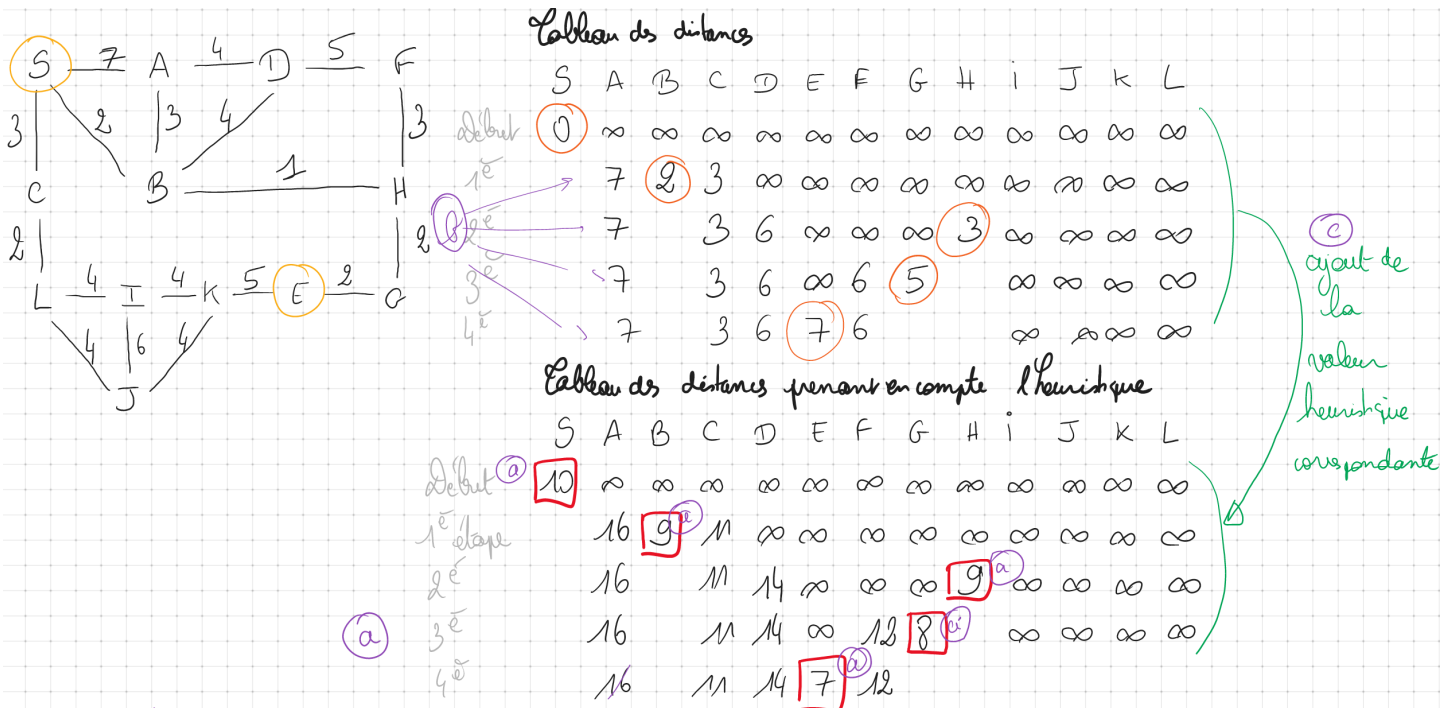 Tableau des distances
S 7 A 4 D 5 F
3 2 3 4 3
C B 1 H
2 2
L 4 I 4 K 5 E 2 G
4 6 4
J
S A B C D E F G H i J K L
Début 0 ∞ ∞ ∞ ∞ ∞ ∞ ∞ ∞ ∞ ∞ ∞ ∞
1è 7 2 3 ∞ ∞ ∞ ∞ ∞ ∞ ∞ ∞ ∞
2è 7 3 6 ∞ ∞ ∞ 3 ∞ ∞ ∞ ∞
3è 7 3 6 ∞ 6 5 ∞ ∞ ∞ ∞
4è 7 3 6 7 6 ∞ ∞ ∞ ∞
c
ajout de
la
valeur
heuristique
correspondante
Tableau des distances prenant en compte l'heuristique
S A B C D E F G H i J K L
Début a 10 ∞ ∞ ∞ ∞ ∞ ∞ ∞ ∞ ∞ ∞ ∞ ∞
1è étape 16 9 a 11 ∞ ∞ ∞ ∞ ∞ ∞ ∞ ∞ ∞
2è 16 11 14 ∞ ∞ ∞ 9 a ∞ ∞ ∞ ∞
a 3è 16 11 14 ∞ 12 8 a ∞ ∞ ∞ ∞
4è 16 11 14 7 a 12